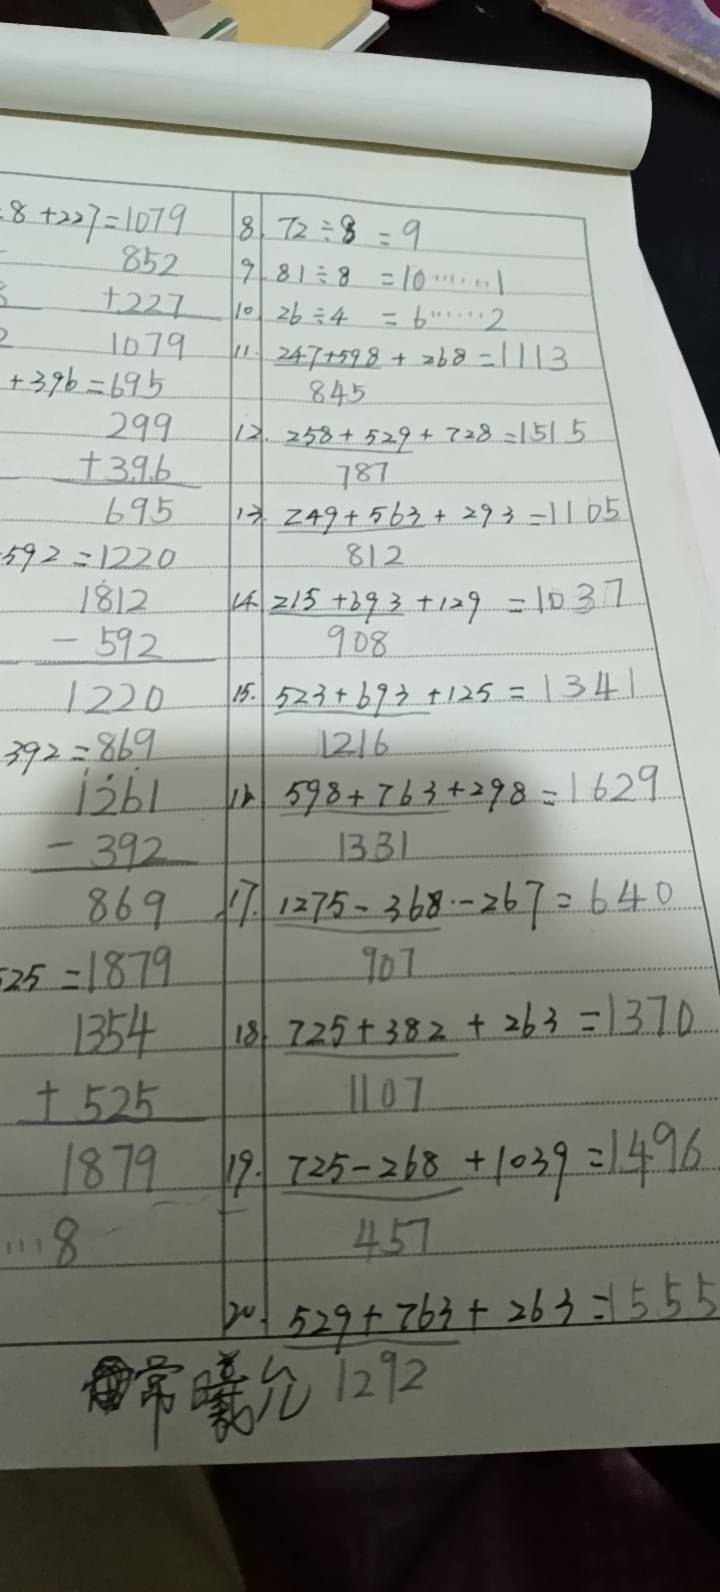 8 +227=1079
852
+227
1079
+396=695
299
+396
695
592=1220
1812
- 592
1220
392=869
1261
- 392
869
525=1879
1354
+ 525
1879
……8
8. 72÷8 =9
9. 81÷8 =10……1
10. 26÷4 =6……2
11. 247+598 + 268=1113
845
12. 258+529+728=1515
787
13. 249+563+293=1105
812
14. 215+693+129 =1037
908
15. 523+693+125=1341
1216
16. 598+763+298=1629
1331
17. 1275-368-267=640
907
18. 725+382 + 263=1370
1107
19. 725-268 +1039=1496
457
20. 529+763+ 263=1555
1292
常曦允